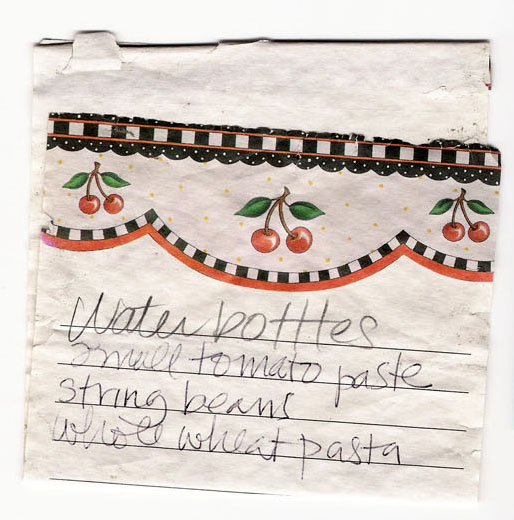 Water botttles
small tomato paste
string beans
whole wheat pasta